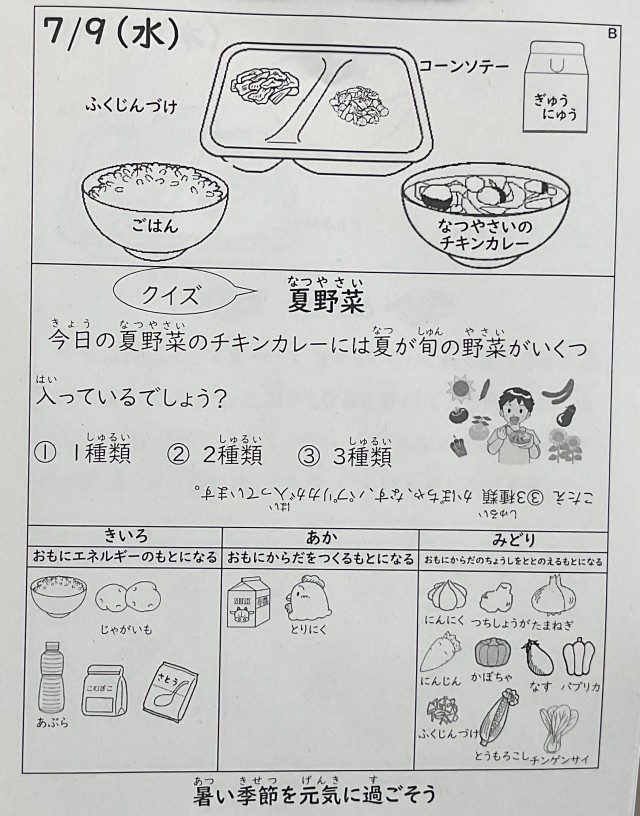 7/9(水)
B
ふくじんづけ
コーンソテー
ぎゅう
にゅう
ごはん
なつやさいの
チキンカレー
クイズ
なつやさい
夏野菜
きょう なつやさい なつ しゅん やさい
今日の夏野菜のチキンカレーには夏が旬の野菜がいくつ
はい
入っているでしょう?
しゅるい しゅるい しゅるい
① 1種類 ② 2種類 ③ 3種類
しゅるい はい
こたえ ③3種類 かぼちゃ、なす、パプリカが入っています。
きいろ
おもにエネルギーのもとになる
じゃがいも
あぶら
こむぎこ
さとう
あか
おもにからだをつくるもとになる
MILK
とりにく
みどり
おもにからだのちょうしをととのえるもとになる
にんにく つちしょうが たまねぎ
にんじん かぼちゃ なす パプリカ
ふくじんづけ とうもろこし チンゲンサイ
あつ きせつ げんき す
暑い季節を元気に過ごそう